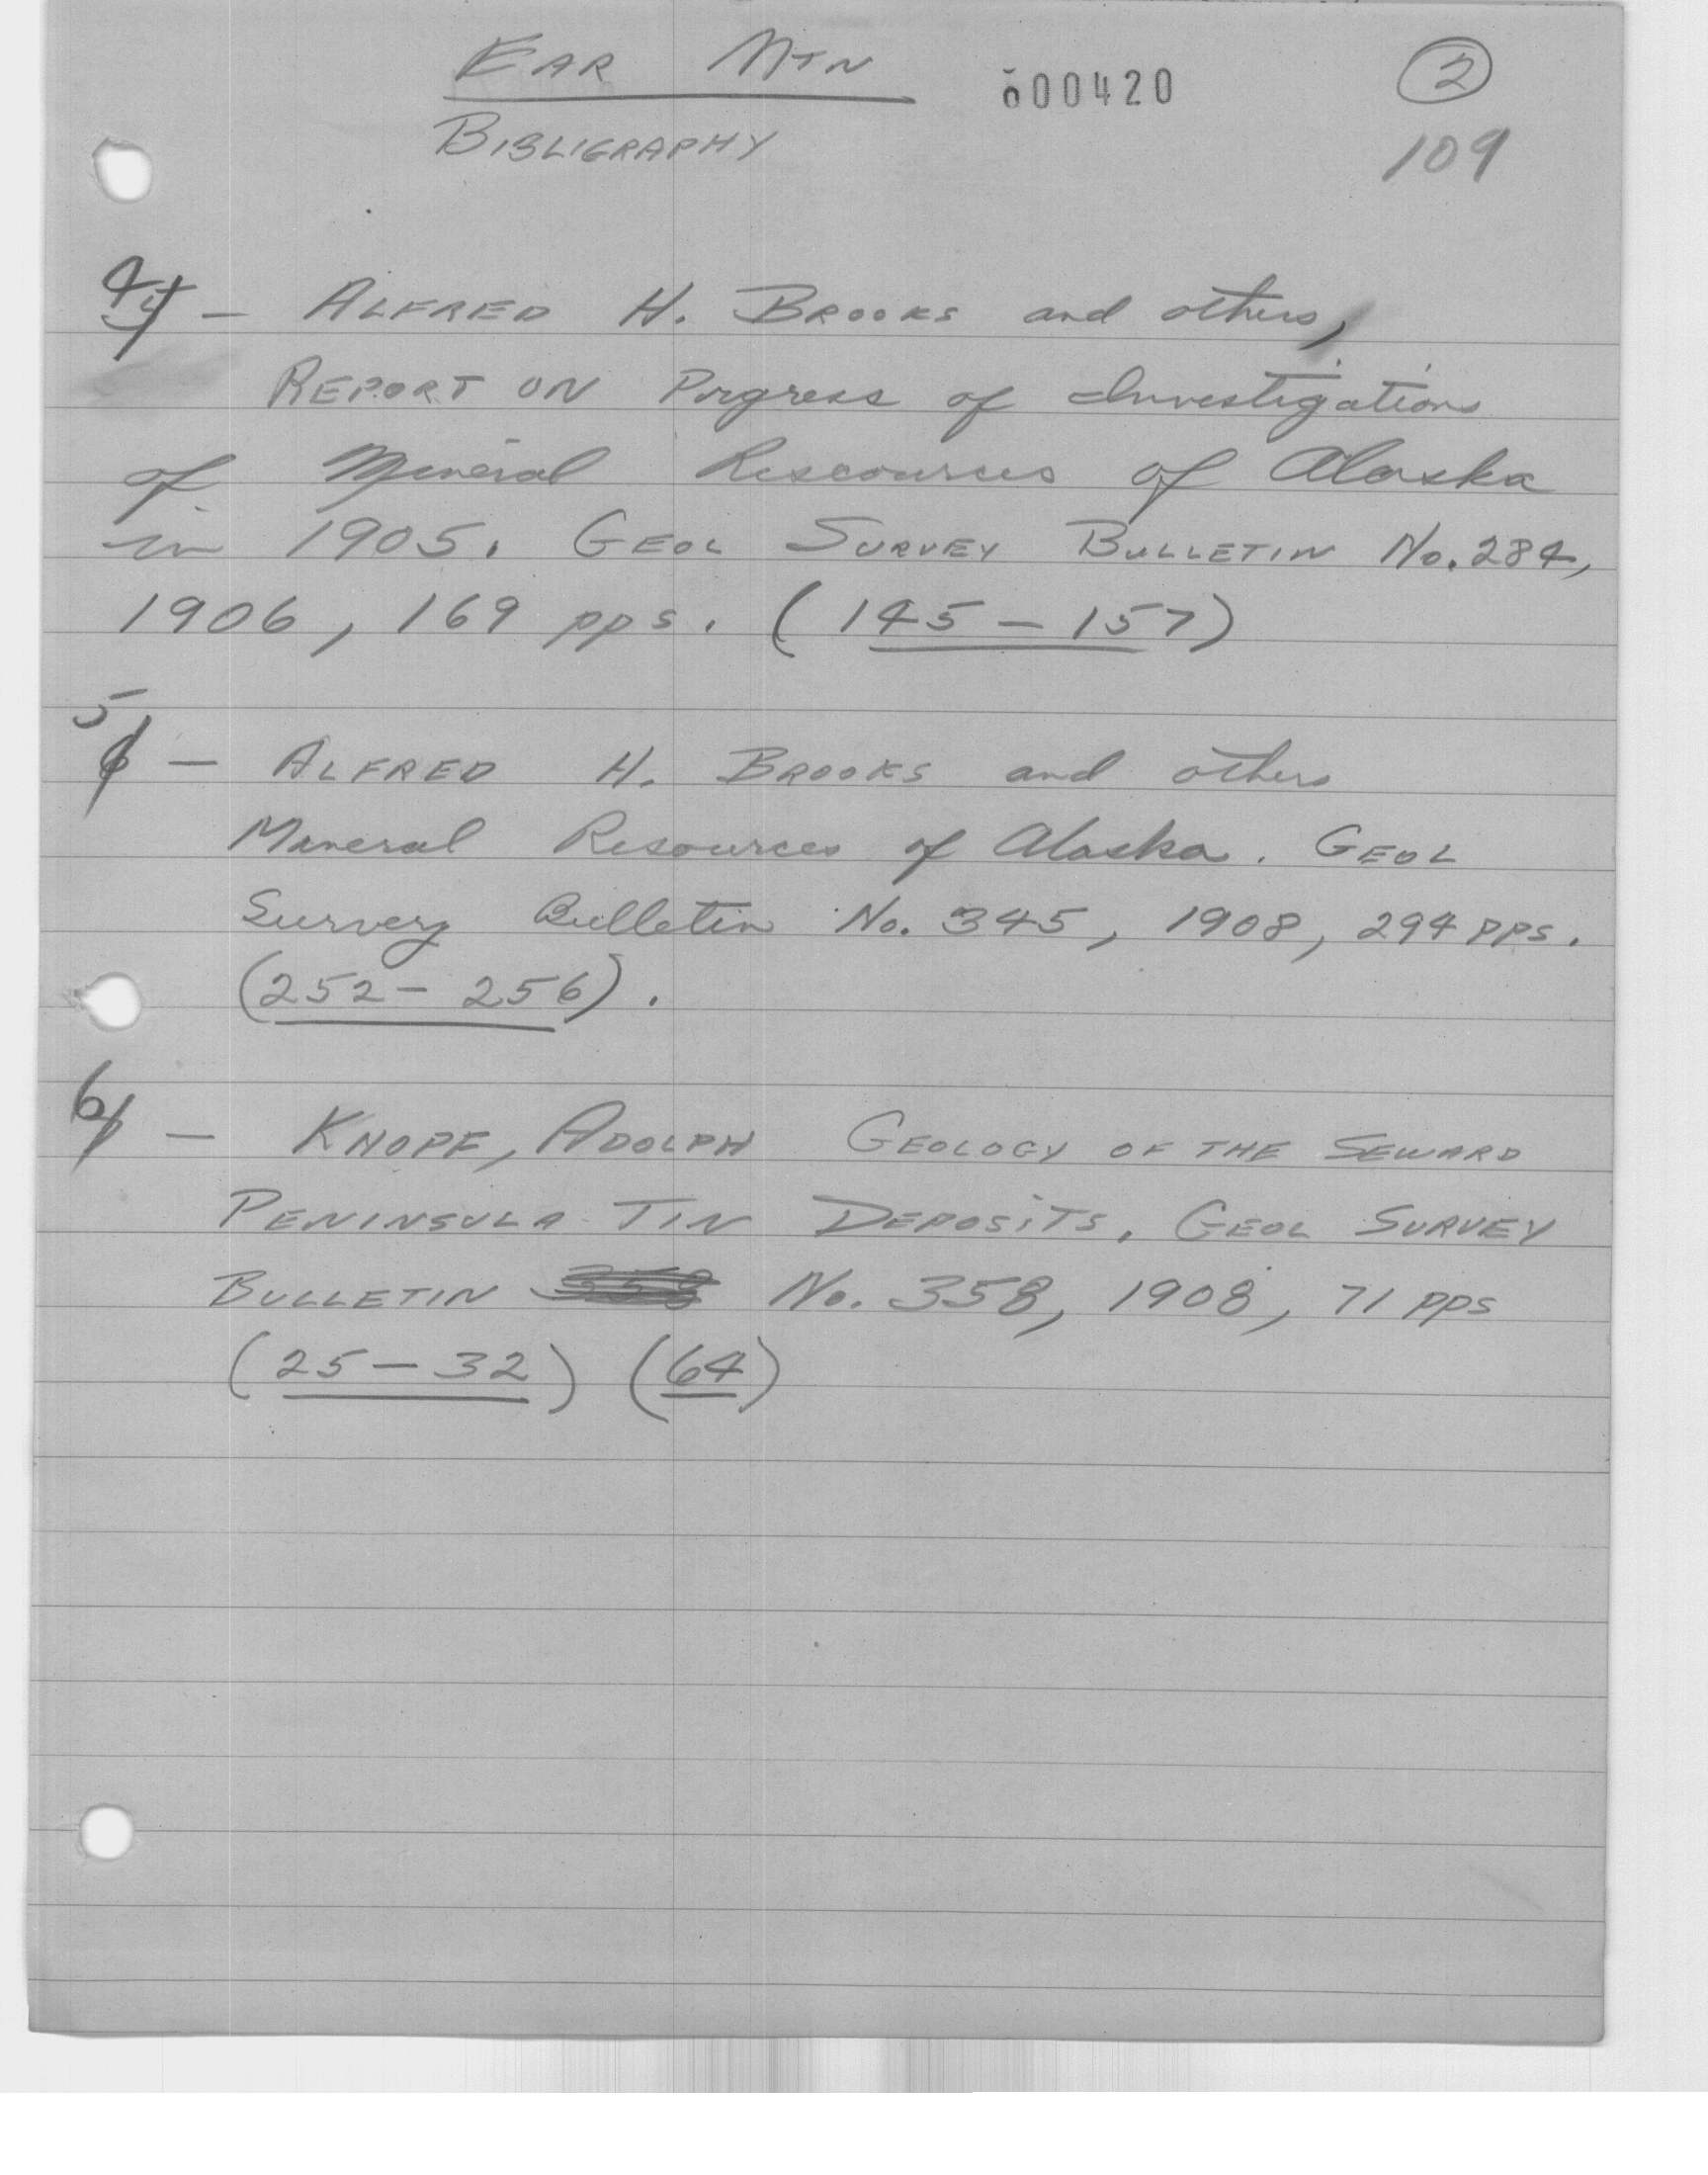 EAR MTN
000420
2
BIBLIGRAPHY
109
4 — ALFRED H. BROOKS and others,
REPORT ON Porgress of Investigations
of Mineral Rescources of Alaska
in 1905. GEOL SURVEY BULLETIN No. 284,
1906, 169 pps. (145 — 157)
5
— ALFRED H. BROOKS and others
Mineral Resources of Alaska. GEOL
Survey Bulletin No. 345, 1908, 294 pps.
(252 - 256).
6 — KNOPF, ADOLPH GEOLOGY OF THE SEWARD
PENINSULA TIN DEPOSITS. GEOL SURVEY
BULLETIN 358 No. 358, 1908, 71 pps
(25 — 32) (64)